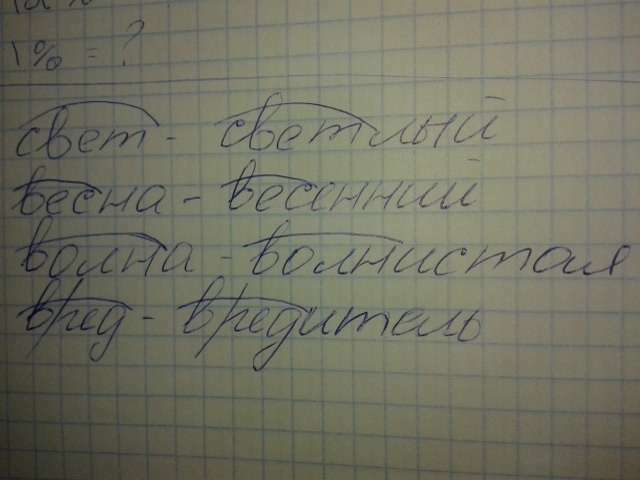 1% = ?
свет - светлый
весна - весенний
волна - волнистая
вред - вредитель